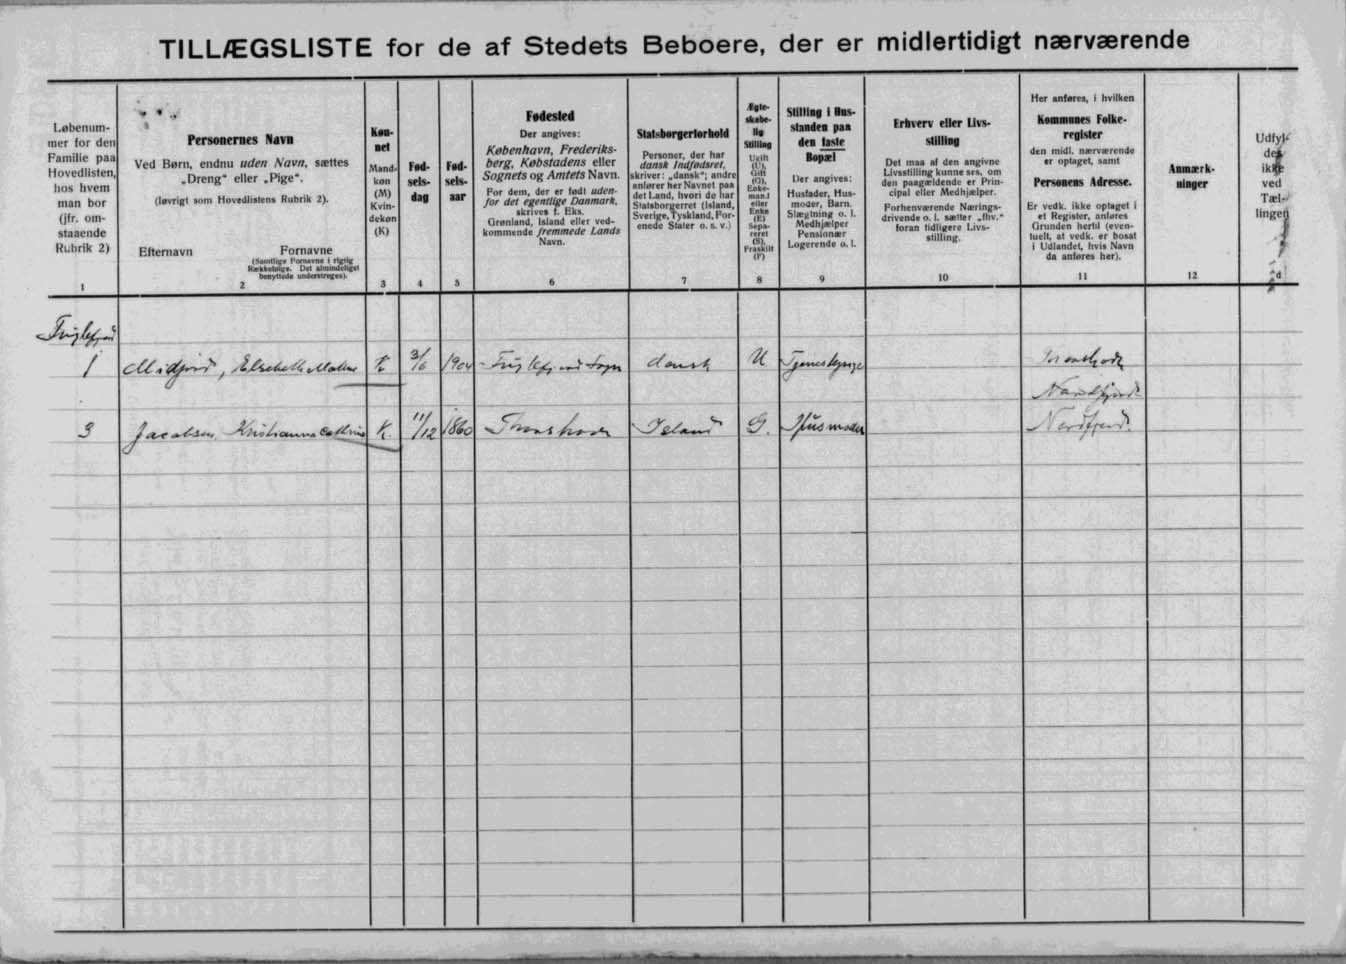 TILLÆGSLISTE for de af Stedets Beboere, der er midlertidigt nærværende
Løbenum-
mer for den
Familie paa
Hovedlisten,
hos hvem
man bor
(jfr. om-
staaende
Rubrik 2)
1
Personernes Navn
Ved Børn, endnu uden Navn, sættes
„Dreng“ eller „Pige“.
(Iøvrigt som Hovedlistens Rubrik 2).
Efternavn Fornavne
(Samtlige Fornavne i rigtig
Rækkefølge. Det almindeligst
benyttede understreges).
2
Køn-
net
Mand-
køn
(M)
Kvin-
dekøn
(K)
3
Fød-
sels-
dag
4
Fød-
sels-
aar
5
Fødested
Der angives:
København, Frederiks-
berg, Købstadens eller
Sognets og Amtets Navn.
For dem, der er født uden-
for det egentlige Danmark,
skrives f. Eks.
Grønland, Island eller ved-
kommende fremmede Lands
Navn.
6
Statsborgerforhold
Personer, der har
dansk Indfødsret,
skriver: „dansk“; andre
anfører her Navnet paa
det Land, hvori de har
Statsborgerret (Island,
Sverige, Tyskland, For-
enede Stater o. s. v.)
7
Ægte-
skabe-
lig
Stilling
Ugift
(U),
Gift
(G),
Enke-
mand
eller
Enke
(E)
Sepa-
reret
(S),
Fraskilt
(F)
8
Stilling i Hus-
standen paa
den faste
Bopæl
Der angives:
Husfader, Hus-
moder, Barn.
Slægtning o. l.
Medhjælper
Pensionær
Logerende o. l.
9
Erhverv eller Livs-
stilling
Det maa af den angivne
Livsstilling kunne ses, om
den paagældende er Prin-
cipal eller Medhjælper.
Forhenværende Nærings-
drivende o. l. sætter „fhv.“
foran tidligere Livs-
stilling.
10
Her anføres, i hvilken
Kommunes Folke-
register
den midl. nærværende
er optaget, samt
Personens Adresse.
Er vedk. ikke optaget i
et Register, anføres
Grunden hertil (even-
tuelt, at vedk. er bosat
i Udlandet, hvis Navn
da anføres her).
11
Anmærk-
ninger
12
Udfyl-
des
ikke
ved
Tæl-
lingen
d
Fuglefjord
1 Midjord, Elsebeth K 3/6 1904 Fuglefjord Sogn dansk U Tjenestepige
Nordfjord
3 Jacobsen, Kristianna K. 11/12 1860 Island G. Husmoder Nordfjord.